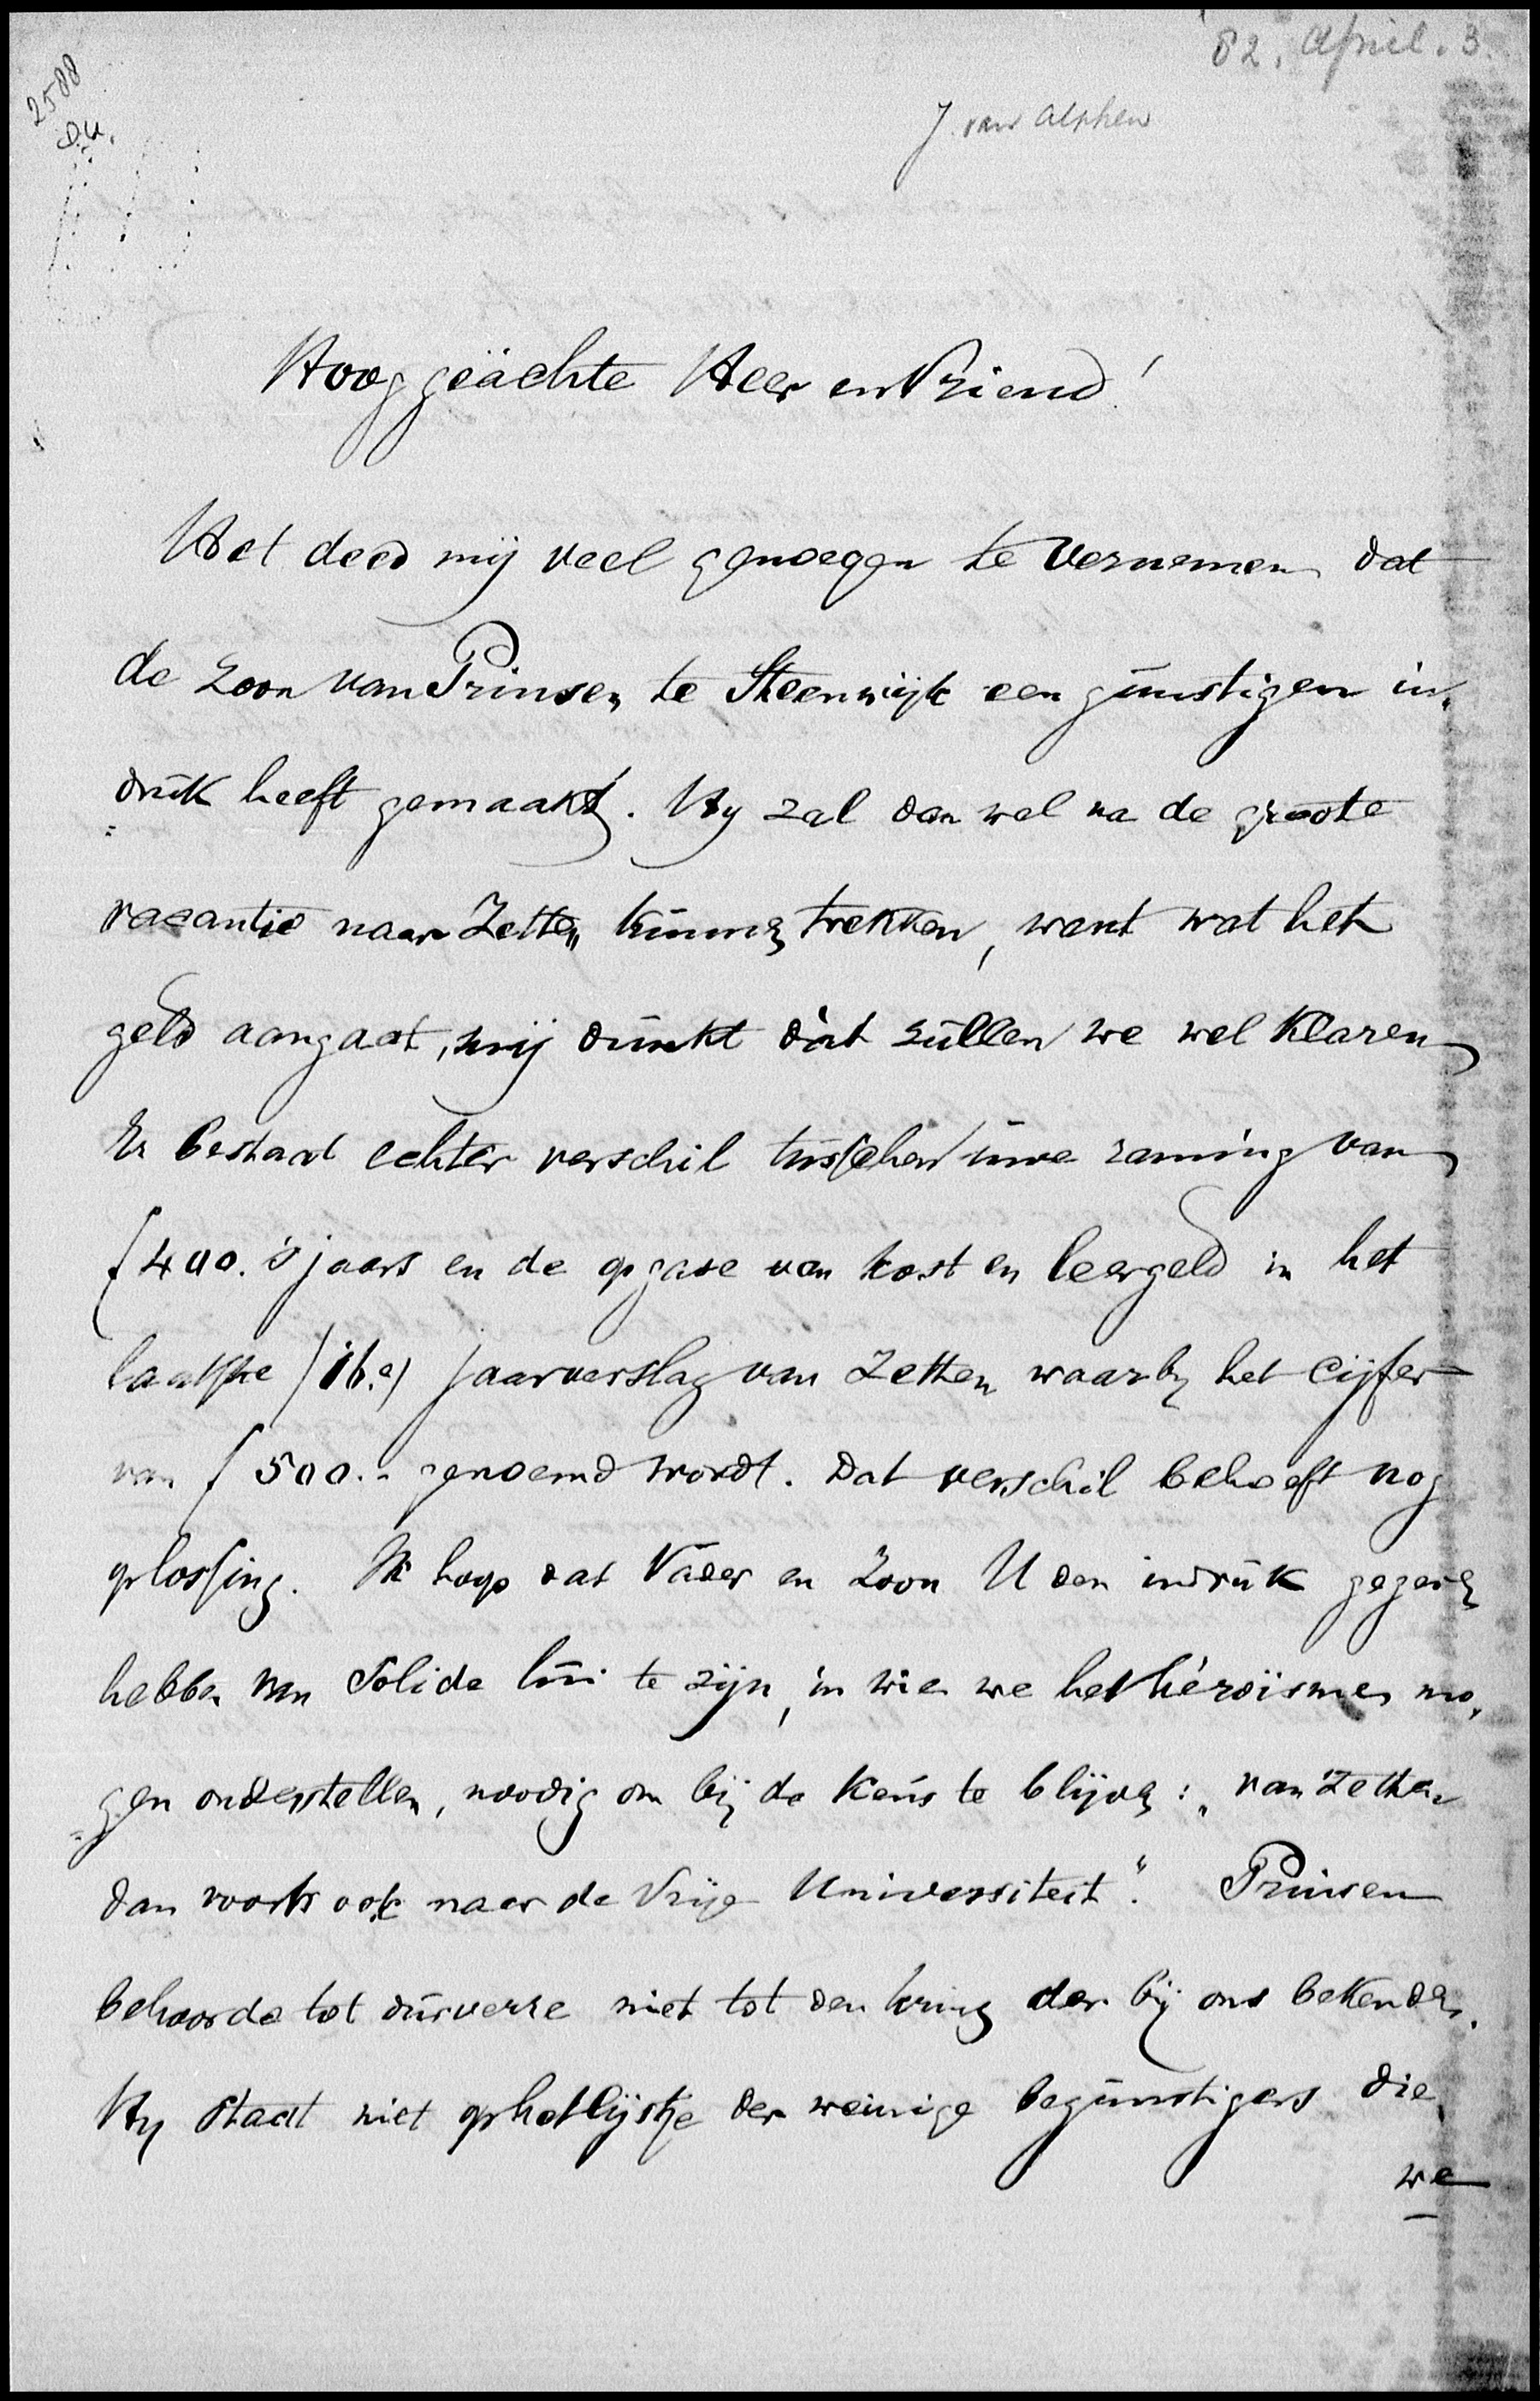 '82. April. 3.
2588
J. van Alphen
Hooggeachte Heer en Vriend!
Het deed mij veel genoegen te vernemen dat
de zoon van Prinsen te Steenwijk een gunstigen in„
druk heeft gemaakt. Hy zal dan wel na de groote
vacantie naar Zetten kunnen trekken, want wat het
geld aangaat, mij dunkt dàt zullen we wel klaren
Er bestaat echter verschil tusschen uwe raming van
f 400. 's jaars en de opgave van kost en leergeld in het
laatste /16.e/ jaarverslag van Zetten waarby het cijfer
van f 500.- genoemd wordt. Dat verschil behoeft nog
oplossing. Ik hoop dat Vader en Zoon U den indruk gegeven
hebben van solide lui te zijn, in wie we het héroïsme mo„
gen onderstellen, noodig om bij de keus te blijven: „van Zetten
dan voorts ook naar de Vrije Universiteit". Prinsen
behoorde tot dusverre niet tot den kring der bij ons bekenden.
Hy staat niet op het lijstje der weinige begunstigers die
we